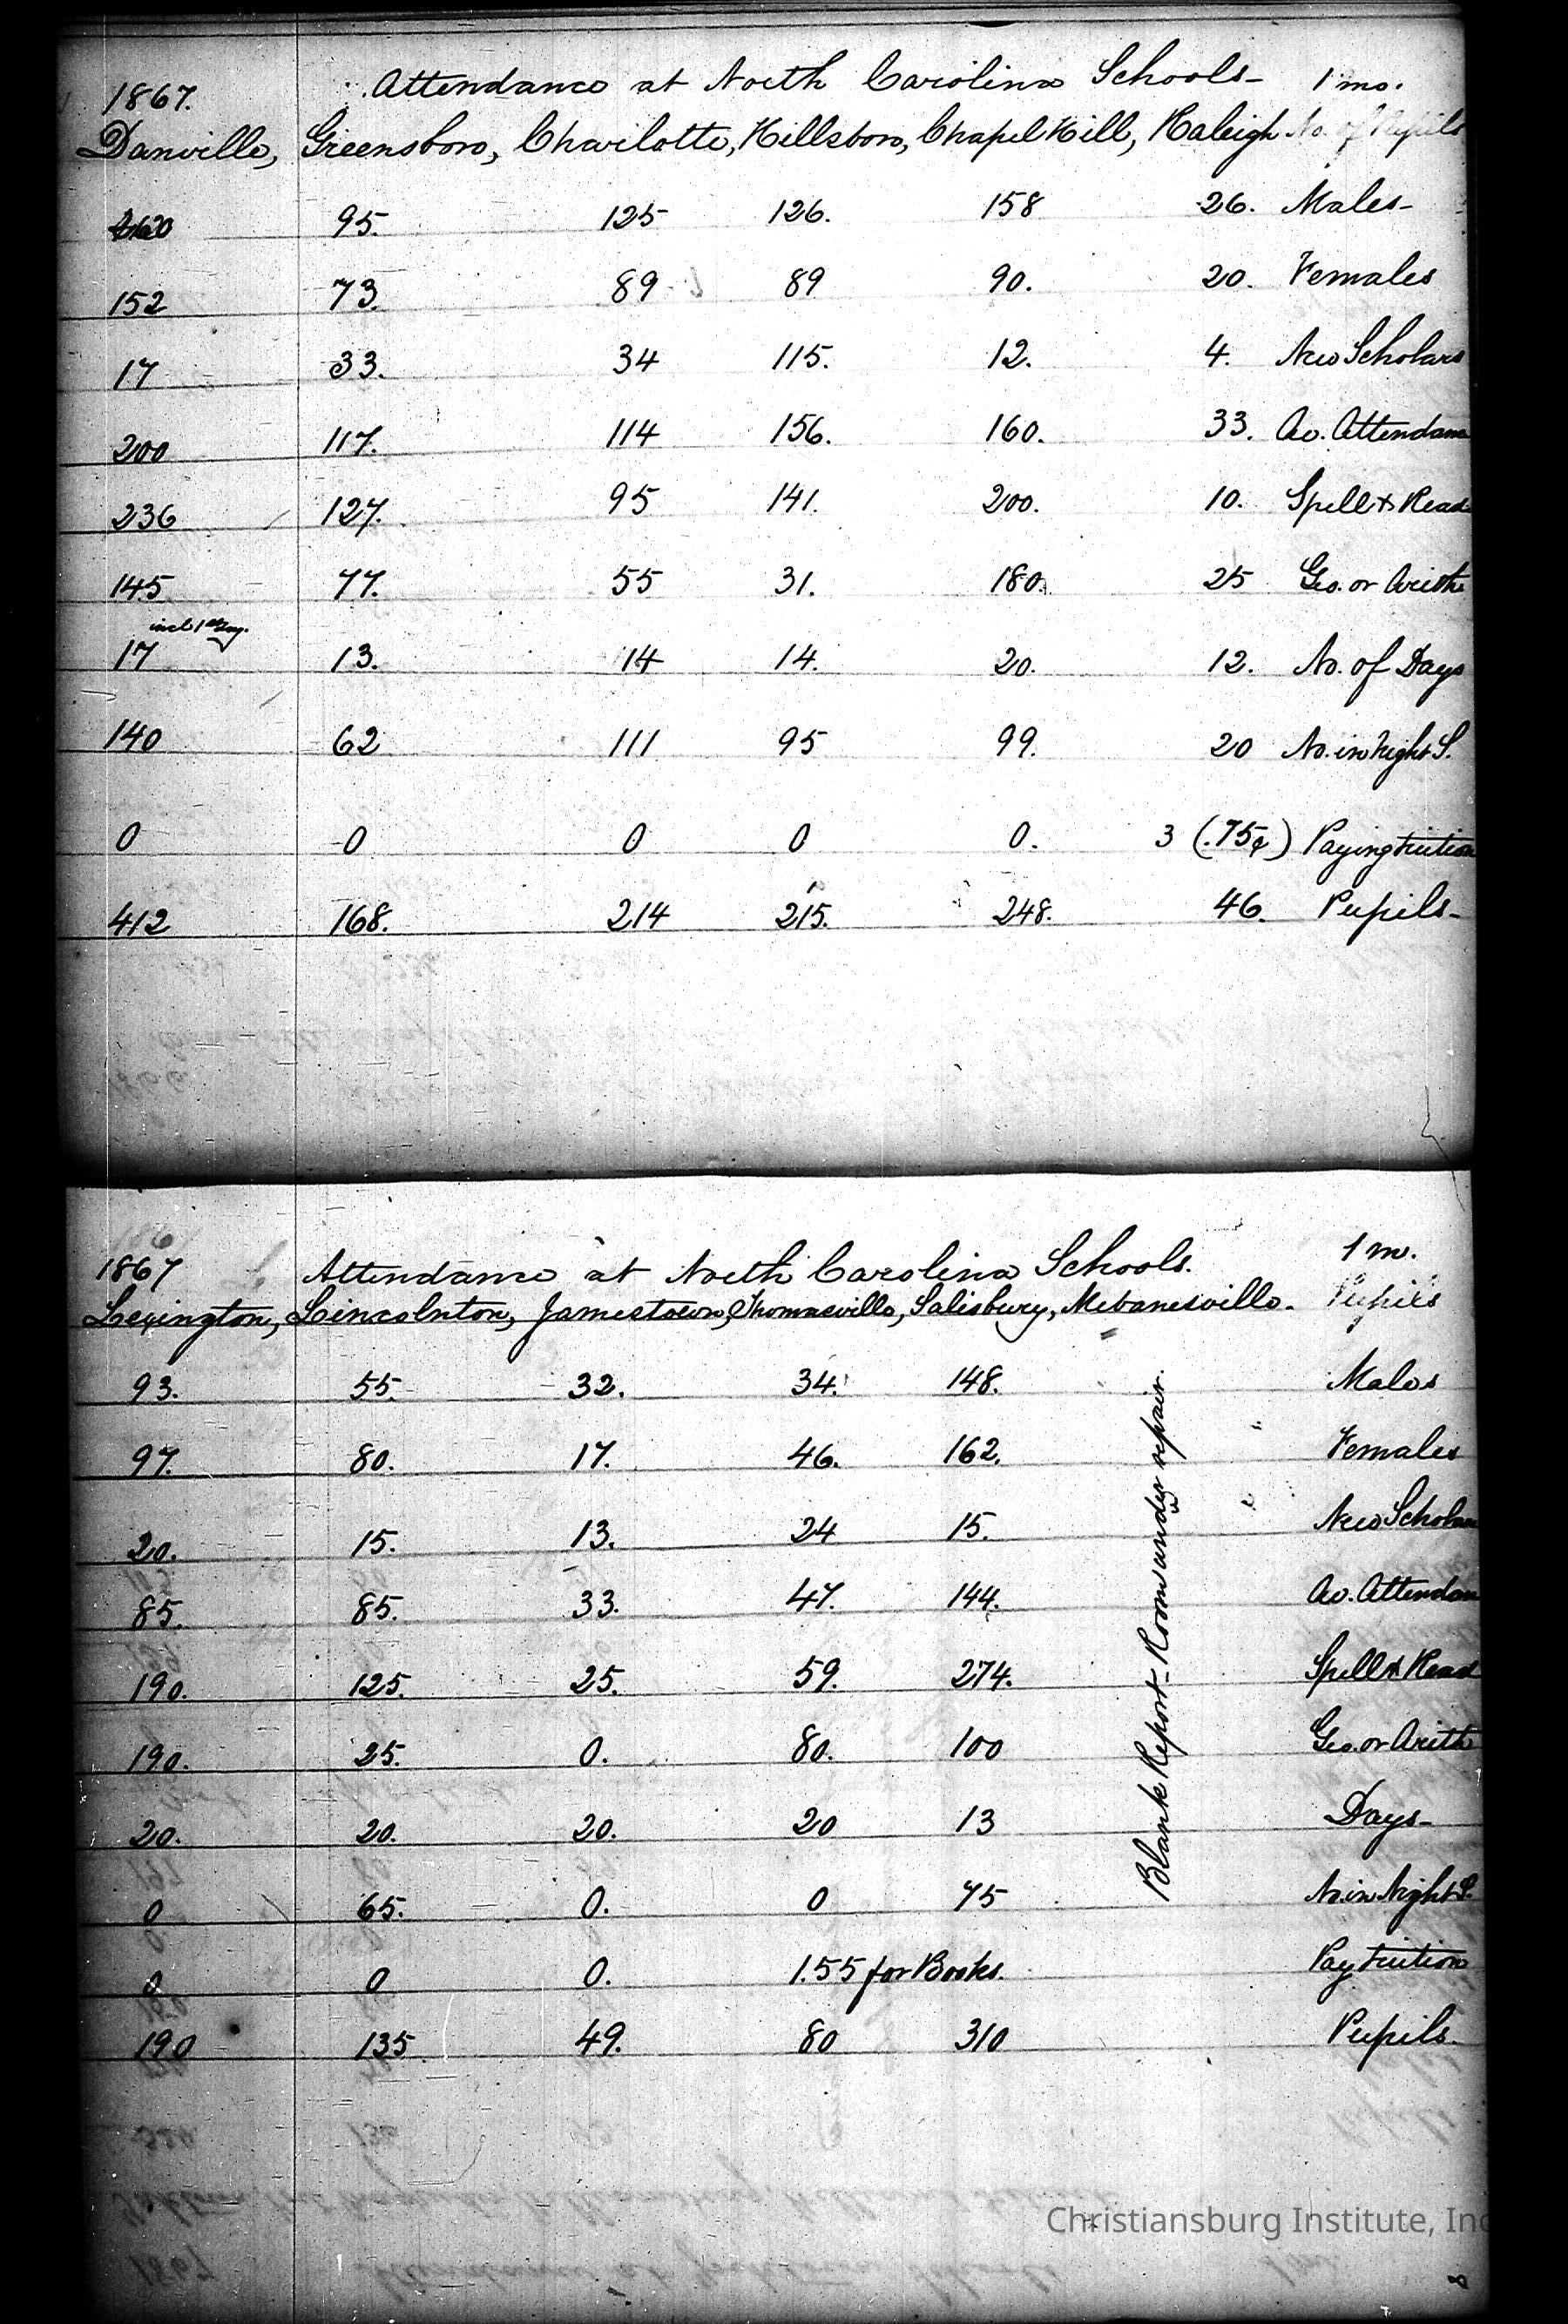 1867. Attendance at North Carolina Schools- 1 mo.
Danville, Greensboro, Charlotte, Hillsboro, Chapel Hill, Raleigh No. of Pupils
260 95. 125 126. 158 26. Males-
152 73. 89 89 90. 20. Females
17 33. 34 115. 12. 4. New Scholars
200 117. 114 156. 160. 33. Av. Attendance
236 127. 95 141. 200. 10. Spell & Read
145 77. 55 31. 180. 25 Geo. or Arith
incl 1st Day.
17 13. 14 14. 20. 12. No. of Days
140 62 111 95 99. 20 No. in Night S.
0 0 0 0 0. 3 (.75¢) Paying tuition
412 168. 214 215. 248. 46. Pupils-
1867 Attendance at North Carolina Schools. 1 m.
Lexington, Lincolnton, Jamestown, Thomasville, Salisbury, Mebanesville. Pupils
93. 55. 32. 34. 148. Males
97. 80. 17. 46. 162. Females
20. 15. 13. 24 15. New Scholars
85. 85. 33. 47. 144. Av. Attendan
190. 125. 25. 59. 274. Spell & Read
190. 25. 0. 80. 100 Geo. or Arith
20. 20. 20. 20 13 Days-
0 65. 0. 0 75 No. in Night S.
0 0 0. 1.55 for Books. Pay tuition
190 135 49. 80 310 Pupils.
Blank Report- Room under repair.
Christiansburg Institute, Inc